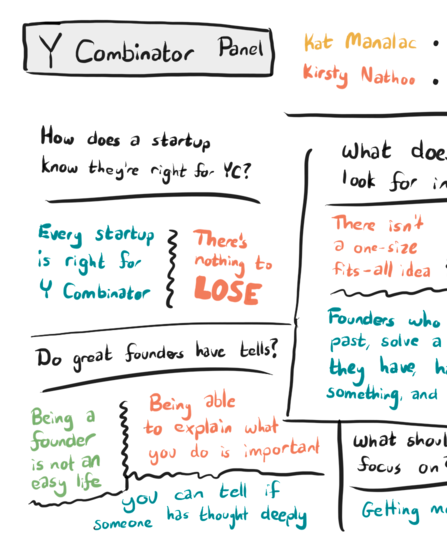 Y Combinator Panel
Kat Manalac •
Kirsty Nathoo •
How does a startup
know they're right for YC?
Every startup
is right for
Y Combinator
There's
nothing to
LOSE
Do great founders have tells?
Being a
founder
is not an
easy life
Being able
to explain what
you do is important
you can tell if
someone has thought deeply
What does
look for in
There isn't
a one-size
fits-all idea
Founders who
past, solve a
they have, ha
something, and
What shoul
focus on
Getting m